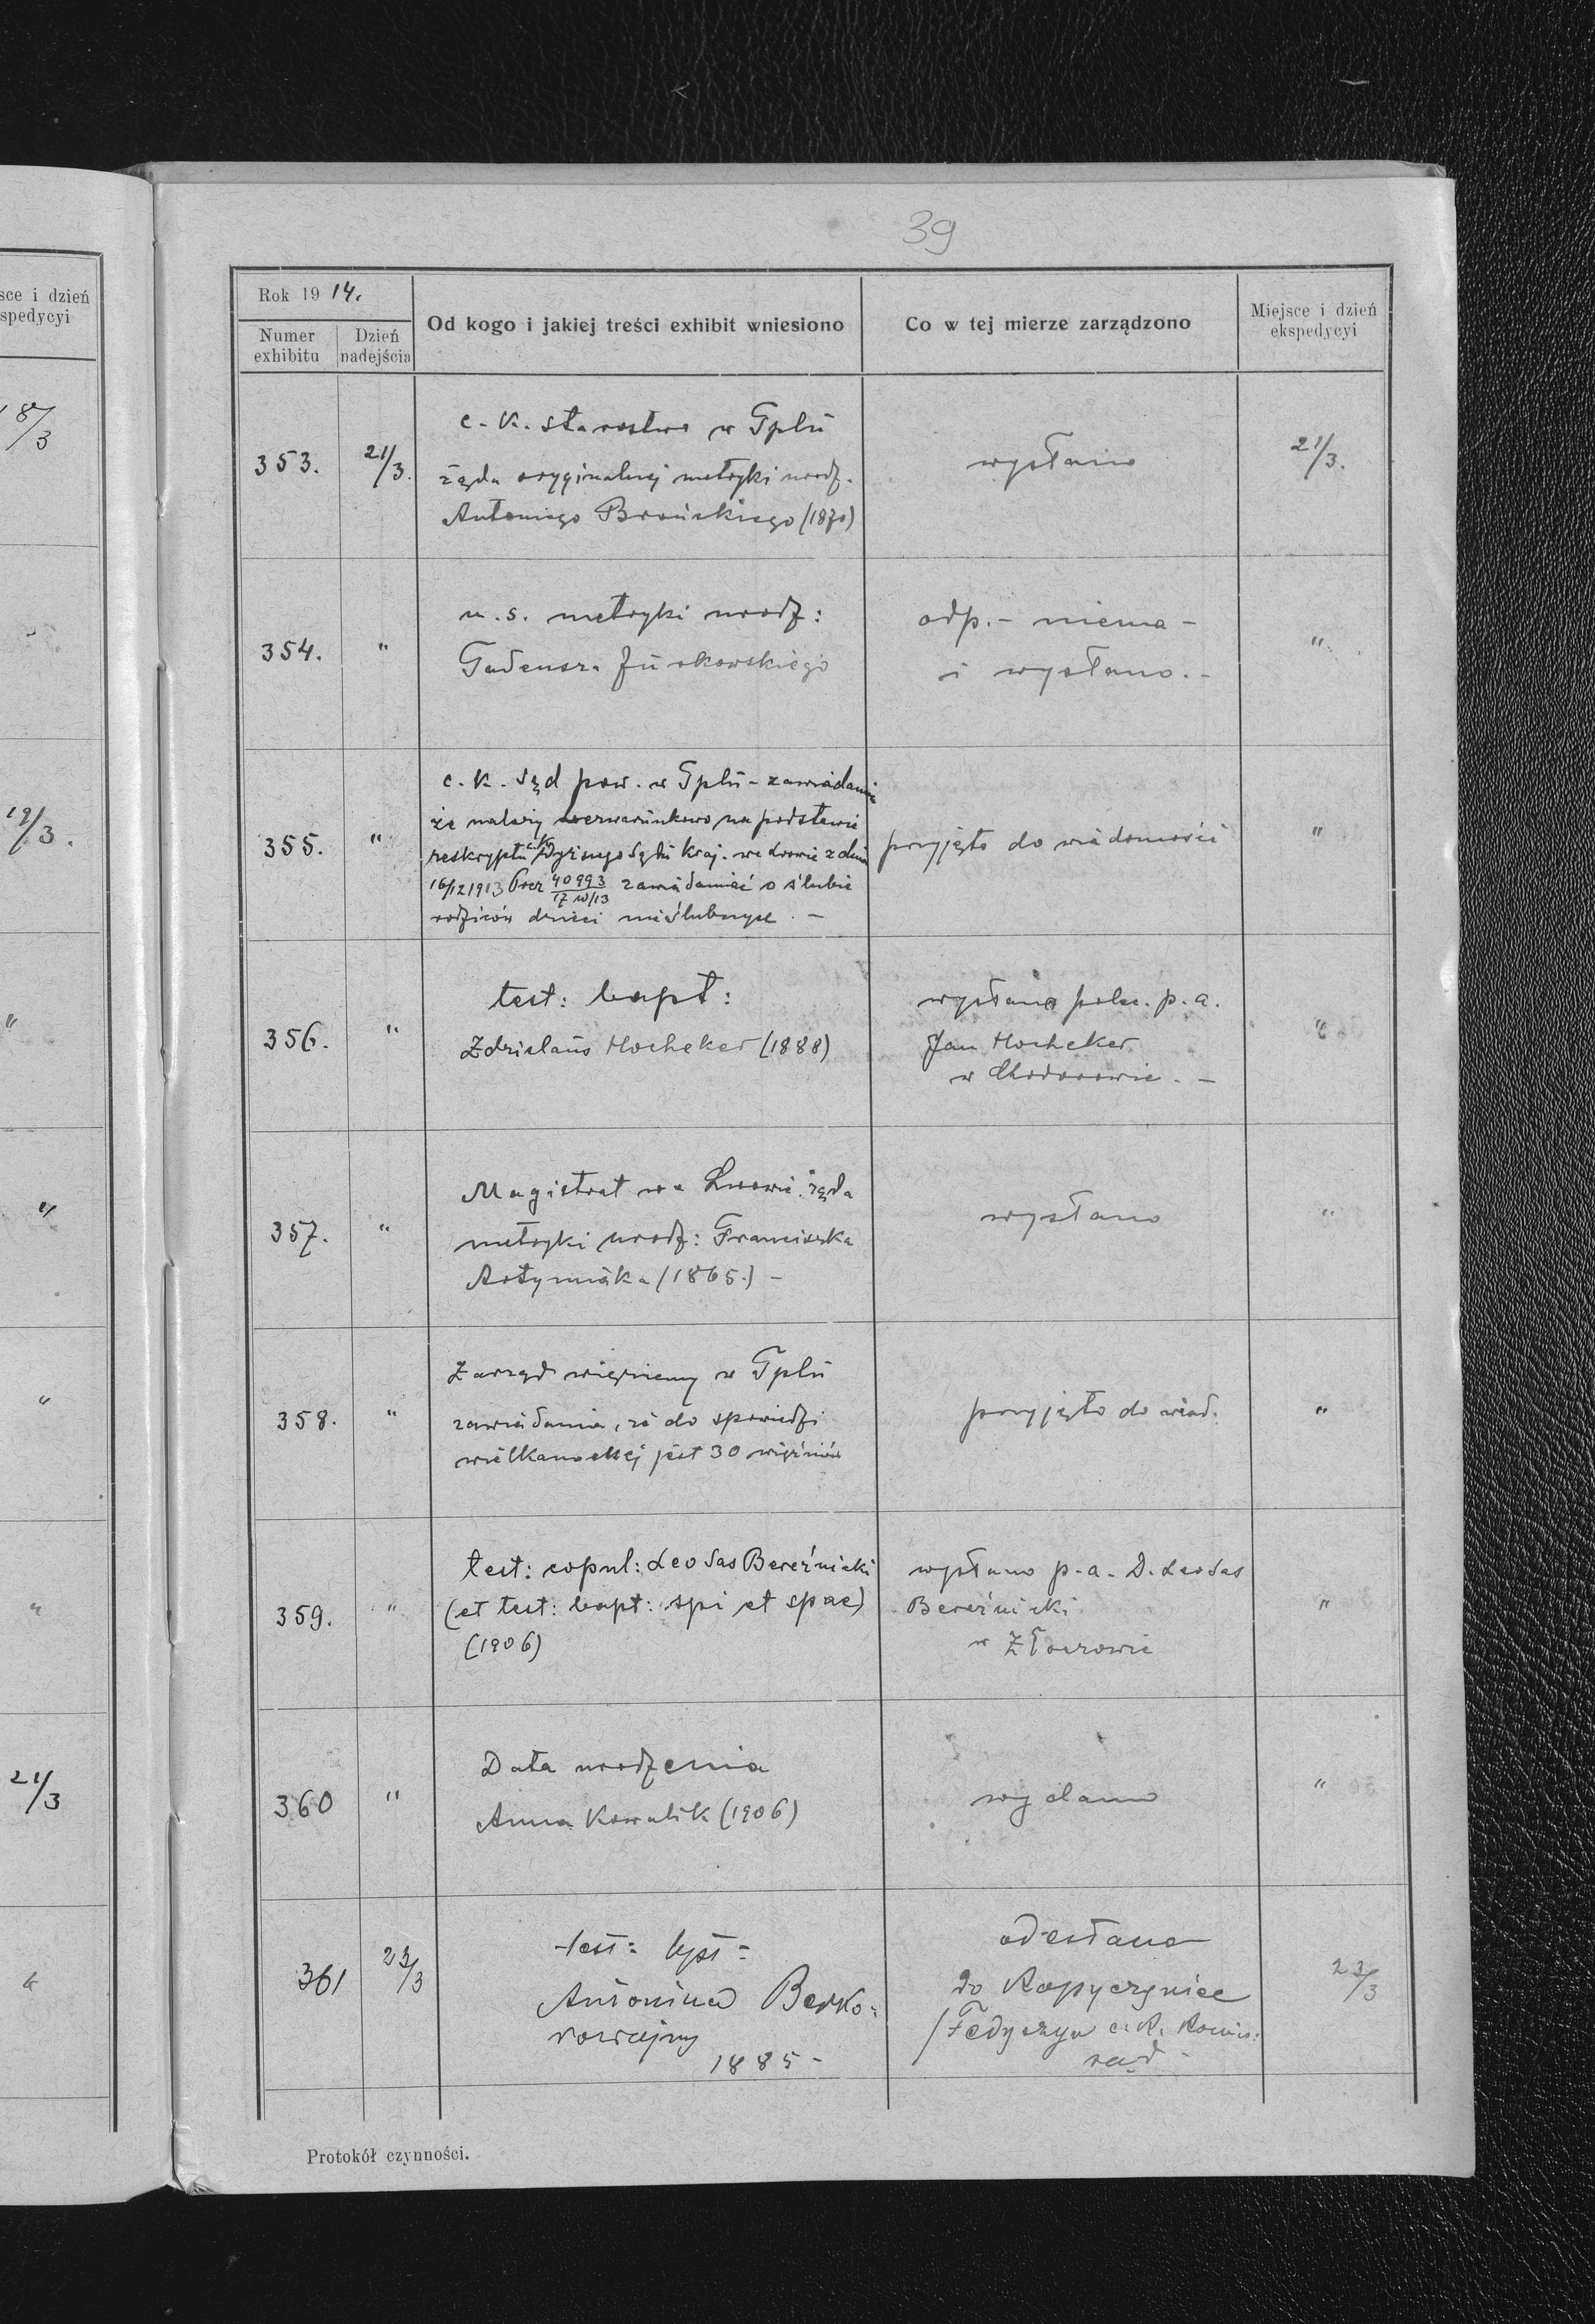 sce i dzień
spedycyi
18/3
"
19/3.
"
"
"
"
21/3
"
39
Rok 1914.
Numer exhibitu
Dzień nadejścia
Od kogo i jakiej treści exhibit wniesiono
Co w tej mierze zarządzono
Miejsce i dzień ekspedycyi
353.
21/3.
c. k. starostwo w Tplu
żąda oryginalnej metryki urodz.
Antoniego Brońskiego (1870)
wysłano
21/3.
354.
"
u. s. metryki urodz:
Tadeusza Żurkowskiego
odp. - niema -
i wysłano. -
"
355.
"
c. k. Sąd pow. w Tplu - zawiadamia
że należy bezwarunkowo na podstawie
reskryptu c. k. Wyższego Sądu kraj. we Lwowie z dnia
16/12 1913 Prez 40993 zawiadamiać o ślubie
rodziców dzieci nieślubnych. -
przyjęto do wiadomości
"
356.
"
test: bapt:
Zdzislaus Hocheker (1888)
wysłano polec. p. a.
Jan Hocheker
w Chodorowie. -
"
357.
"
Magistrat we Lwowie żąda
metryki urodz: Franciszka
Artymiaka (1865.) -
wysłano
"
358.
"
Zarząd więzienny w Tplu
zawiadamia, że do spowiedzi
wielkanocnej jest 30 więźniów
przyjęto do wiad.
"
359.
"
test: copul: Leo Sas Bereźnicki
(et test: bapt: spi et spae)
(1906)
wysłano p. a. D. Leo Sas
Bereźnicki
w Złoczowie
"
360
"
Data urodzenia
Anna Kowalik (1906)
wydano
"
361
23/3
test: bpt:
Antonina
1885 -
odesłano
do Kopyczyniec
/Fedyczyn c. k. Komis:
rząd -
23/3
Protokół czynności.